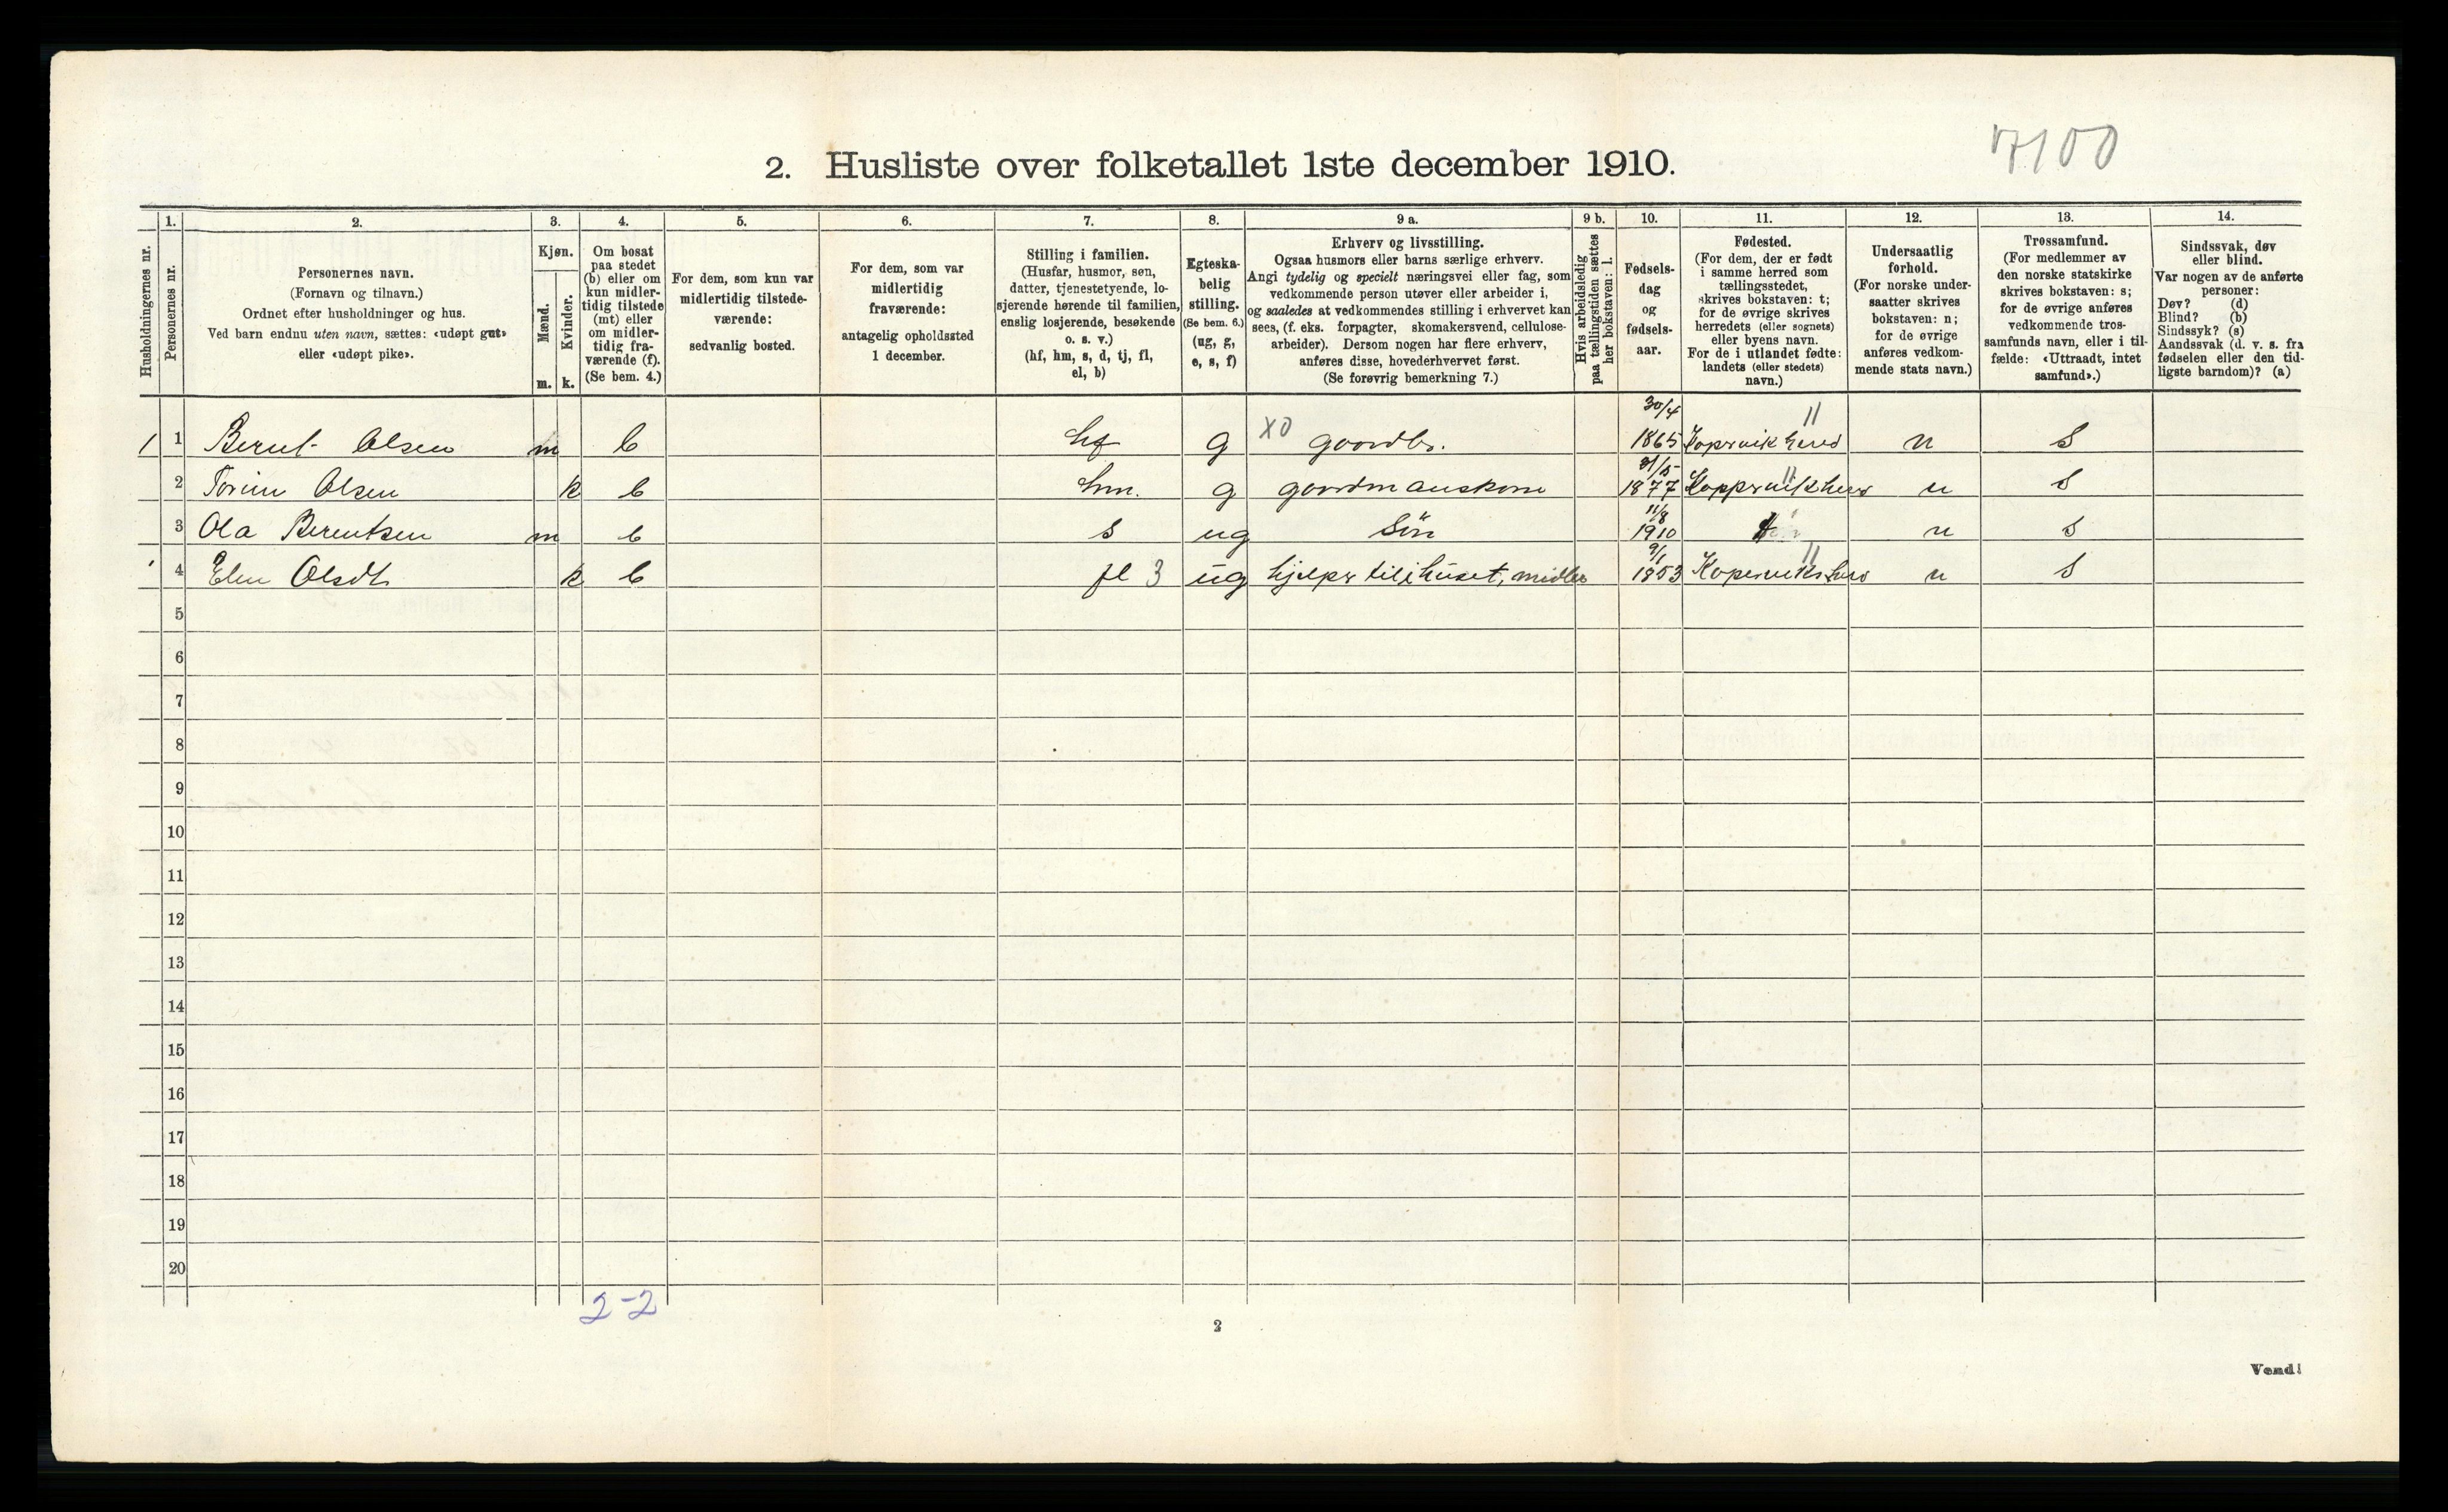 7100
2. Husliste over folketallet 1ste december 1910.
Husholdningernes nr.
1.
Personernes nr.
2.
Personernes navn.
(Fornavn og tilnavn.)
Ordnet efter husholdninger og hus.
Ved barn endnu uten navn, sættes: «udøpt gut»
eller «udøpt pike».
3.
Kjøn.
Mænd.
Kvinder.
m. k.
4.
Om bosat
paa stedet
(b) eller om
kun midler-
tidig tilstede
(mt) eller
om midler-
tidig fra-
værende (f).
(Se bem. 4.)
5.
For dem, som kun var
midlertidig tilstede-
værende:
sedvanlig bosted.
6.
For dem, som var
midlertidig
fraværende:
antagelig opholdssted
1 december.
7.
Stilling i familien.
(Husfar, husmor, søn,
datter, tjenestetyende, lo-
sjerende hørende til familien,
enslig losjerende, besøkende
o. s. v.)
(hf, hm, s, d, tj, fl,
el, b)
8.
Egteska-
belig
stilling.
(Se bem. 6.)
(ug, g,
e, s, f)
9 a.
Erhverv og livsstilling.
Ogsaa husmors eller barns særlige erhverv.
Angi tydelig og specielt næringsvei eller fag, som
vedkommende person utøver eller arbeider i,
og saaledes at vedkommendes stilling i erhvervet kan
sees, (f. eks. forpagter, skomakersvend, cellulose-
arbeider). Dersom nogen har flere erhverv,
anføres disse, hovederhvervet først.
(Se forøvrig bemerkning 7.)
9 b.
Hvis arbeidsledig
paa tællingstiden sættes
her bokstaven: l.
10.
Fødsels-
dag
og
fødsels-
aar.
11.
Fødested.
(For dem, der er født
i samme herred som
tællingsstedet,
skrives bokstaven: t;
for de øvrige skrives
herredets (eller sognets)
eller byens navn.
For de i utlandet fødte:
landets (eller stedets)
navn.)
12.
Undersaatlig
forhold.
(For norske under-
saatter skrives
bokstaven: n;
for de øvrige
anføres vedkom-
mende stats navn.)
13.
Trossamfund.
(For medlemmer av
den norske statskirke
skrives bokstaven: s;
for de øvrige anføres
vedkommende tros-
samfunds navn, eller i til-
fælde: «Uttraadt, intet
samfund».)
14.
Sindssvak, døv
eller blind.
Var nogen av de anførte
personer:
Døv? (d)
Blind? (b)
Sindssyk? (s)
Aandssvak (d. v. s. fra
fødselen eller den tid-
ligste barndom)? (a)
1 1 Bernt Olsen m b hf g X0 30/4 1865 n s
2 Olsen k b hm. g 1877 n s
3 Ola Berentsen m b s ug Sön 11/8 1910 n s
4 Elen Olsdt k b fl 3 ug hjelper til i huset, 9/1 1853 n s
5
6
7
8
9
10
11
12
13
14
15
16
17
18
19
20
2-2
2
Vend!